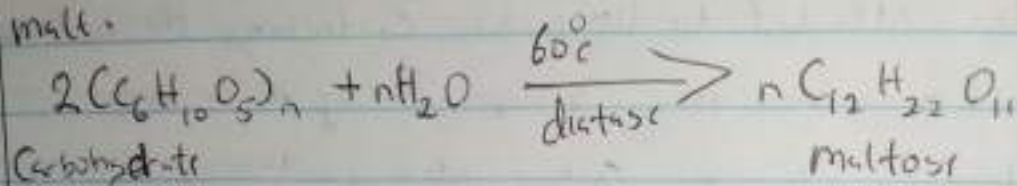 malt.
2(C₆H₁₀O₅)ₙ + nH₂O 60°C diatase > n C₁₂ H₂₂ O₁₁
Carbohydrate maltose